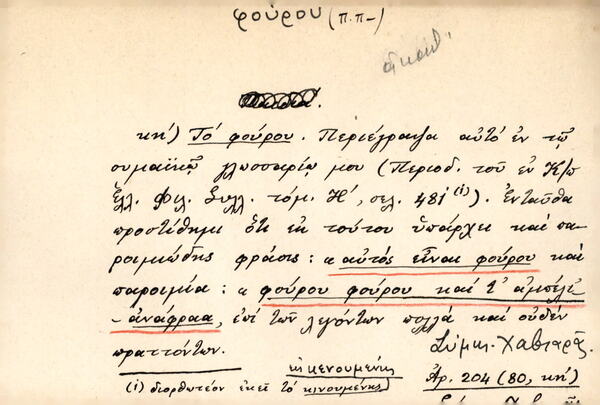 φούρου (π.π-)
ἀκαθ.
κη′) Τὸ φούρου. Περιέγραψα αὐτὸ ἐν τῷ
συμαϊκῷ γλωσσαρίῳ μου (Περιοδ. τοῦ ἐν Κ/π
Ἑλλ. Φιλ. Συλλ. τόμ. Η′, σελ. 481 (1)). Ἐνταῦθα
προστίθημι ὅτι ἐκ τούτου ὑπάρχει καὶ πα-
ροιμιώδης φράσις: «αὐτὸς εἶναι φούρου καὶ
παροιμία: «φούρου φούρου καὶ τ' ἀμπέλι
-ἀνάφραα, ἐπὶ τῶν λεγόντων πολλὰ καὶ οὐδὲν
πραττόντων.
Σύμης. Χαβιαρᾶς.
εἰς κενουμένης
(1) διορθωτέον ἐκεῖ τὸ κινουμένης
Ἀρ. 204 (80, κη′)